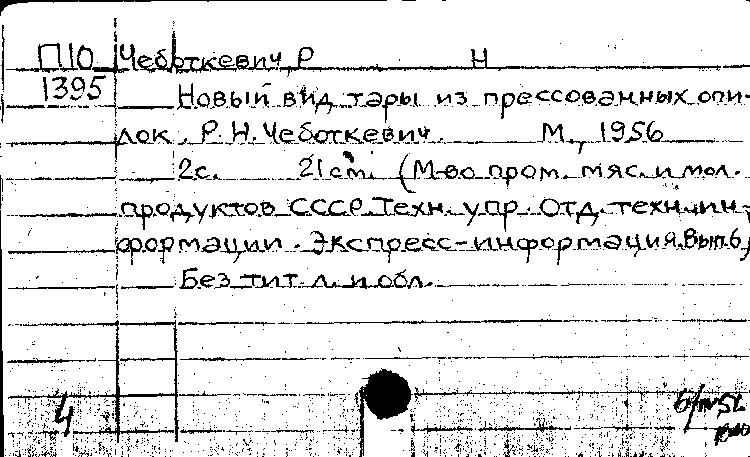 П10 Чеботкевич, Р Н
1395 Новый вид тары из прессованных опи-
лок, Р. Н. Чеботкевич. М., 1956
2с. 21 см. (М-во пром. мяс. и мол.
продуктов СССР. Техн. упр. Отд. техн. ин-
формации. Экспресс-информация. Вып. 6)
Без тит. л. и обл.
4